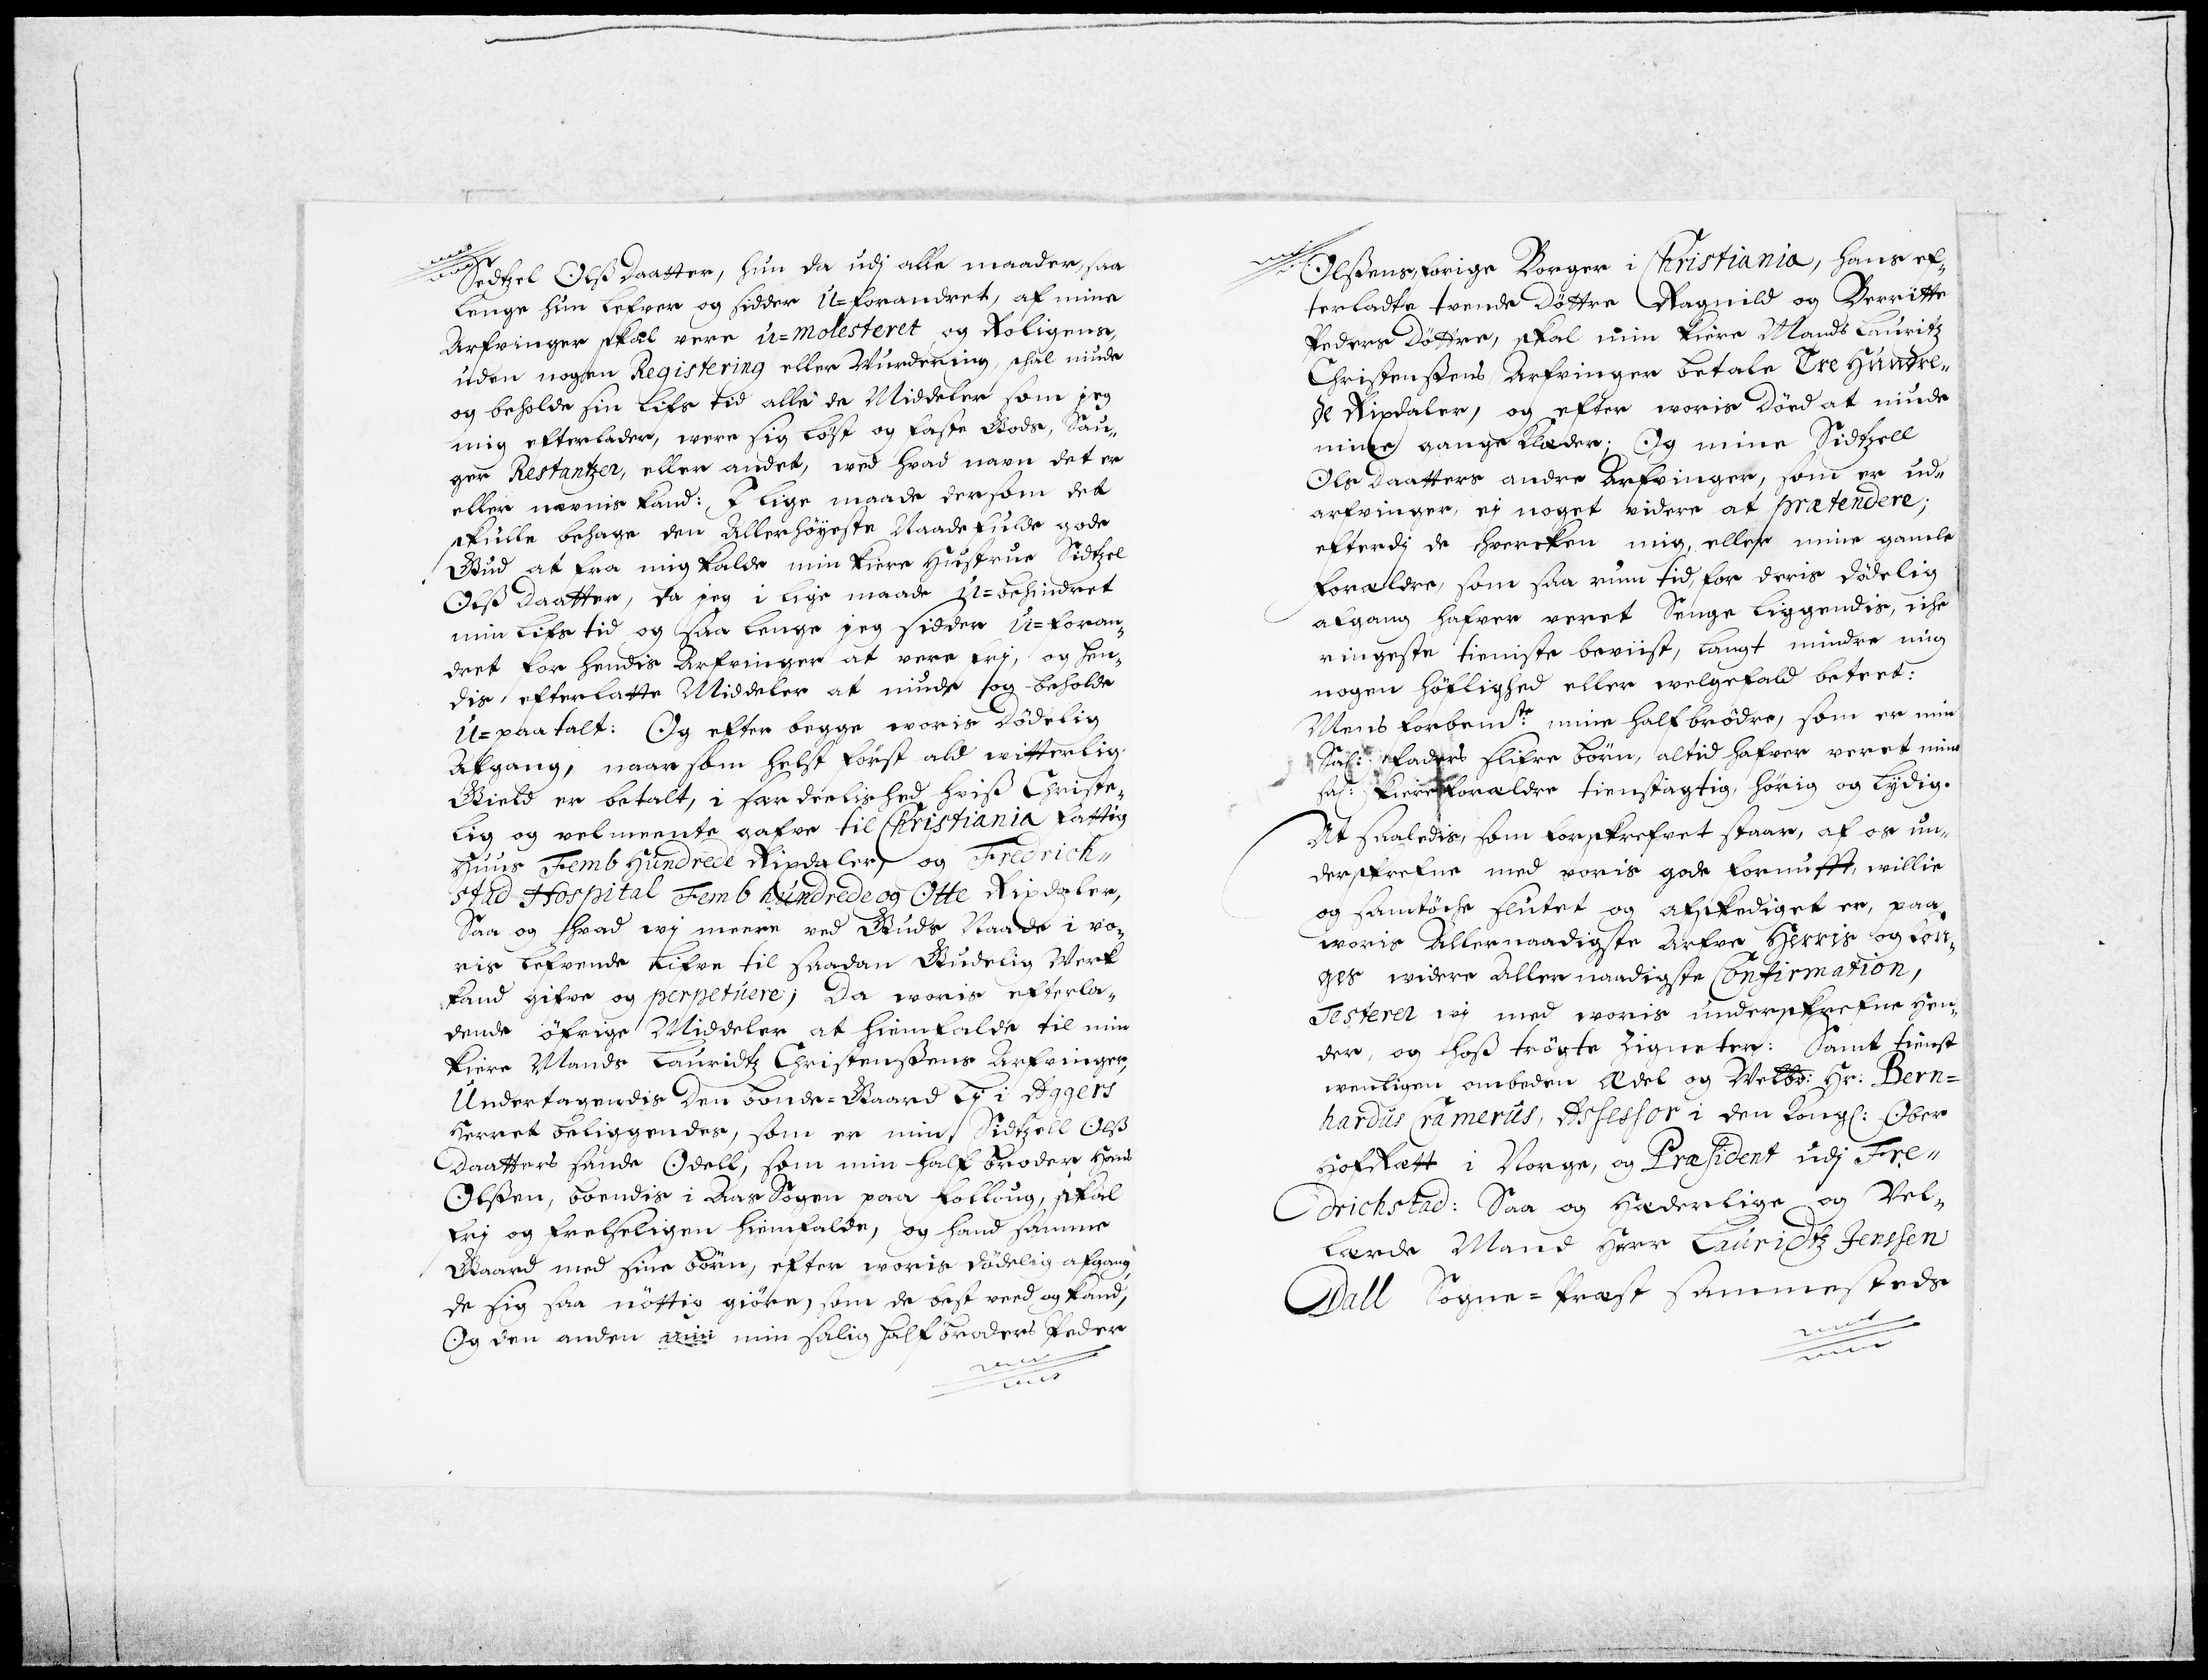 Sedtzel Olß Daatter, hun da udj alle maader, saa
lenge hun lefver og sidder U=forandret, af mine
Arfvinger skal vere u=molesteret og Roligens,
uden nogen Registering eller Wurdering, schal niude
og beholde sin Lifs tid alle de Middeler som jeg
mig efterlader, were sig löst og faste Gods, Pen¬
ger Restantzer, eller andet, wed hvad navn det er
eller nævnis kand: I lige maade dersom det
skulle behage den Allerhöyeste Naadefulde gode
Gud at fra mig kalde min kiere Hustrue Sidtzel
Olß Daatter, da jeg i lige maade U=behindret
min Lifs tid og saa lenge jeg sidder U=foran¬
dret for hendis Arfvinger at vere frj, og hen¬
dis efterlatte Middeler at niude og beholde
U=paatalt: Og efter begge woris Dödelig
Afgang, naar som helst först ald witterlig
Gield er betalt, i særdeelished hviß Christe¬
lig og velmeente gafve til Christiania Fattig
Huus Femb Hundrede Rixdaler, og Fredrich¬
stad Hospital Femb hundrede og Otte Rixdaler,
Saa og hvad wj meere ved Guds Naade i vo¬
ris lefvende Lifve til saadan Gudelig Werk
kand gifve og perpetuere; Da woris efterla¬
dende öfrige Middeler at hiemfalde til min
kiere Mands Lauridtz Christenßens Arfvinger,
Undertagendis Den bonde=Gaard Ly i Aggers
Herret beliggendes, som er min Sidtzell Olß
Daatters sande Odell, som min half broder Hans
Olßen, boendis i Aas Sogen paa Follоug, skal
frj og frelseligen hiemfalde, og hand samme
Gaard med sine börn, efter woris dödelig afgang,
de sig saa nöttig giöre, som de best veed og kand,
Og den anden min min salig half broders Peder
Olßens, forige Borger i Christiania, hans ef¬
terladte tvende Döttre Ragnild og Berritte
Peders Döttre, skal min kiere Mands Lauritz
Christenßens Arfvinger betale Tre Hundre¬
de Rixdaler, og efter woris Död at niude
mine gange Klæder; Og mine Sidtzell
Ols Daatters andre Arfvinger, som er ud¬
arfvinger, ej noget videre at prætendere;
efterdj de hvercken mig, eller mine gamle
Forældre, som saa rum tid, for deris dödelig
afgang hafver veret Senge liggendis, iche
ringeste tieniste beviist, langt mindre mig
nogen höflighed eller welgefald beteet:
Mens forbemte: mine halfbrödre, som er min
Sal: Faders slifre börn, altid hafver veret mine
sal: kiere Forældre tienstagtig, hörig og lydig.
At saaledis, som forskrefvet staar, af os un¬
derskrefne med woris gode fornufft, willie
og samtöche slutet og afskediget er, paa
woris Allernaadigste Arfve Herris og Kon¬
ges widere Allernaadigste Confirmation,
Testerer wj med woris underskrefne Hen¬
der, og hoß trögte Zigneter: Samt tienst
wenligen ombeden Ædel og Welbr: Hr: Bern=
hardus Cramerus, Assessor i den Kongl: Ober
Hofrætt i Norge, og Præsident udj Fre¬
drichstad: Saa og Hæderlige og Vel¬
lærde Mand Herr Lauridtz Jenssen
Dall Sogne=Præst sammesteds